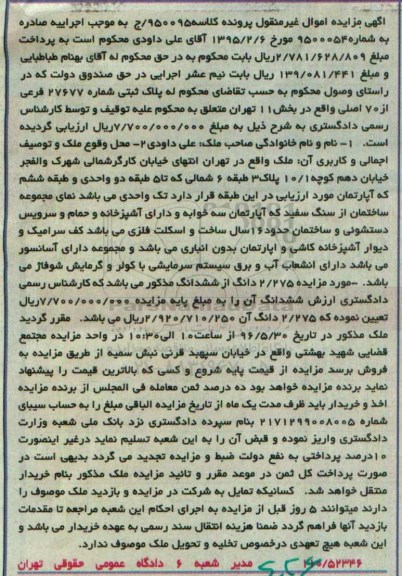 آگهی مزایده اموال غیرمنقول پرونده کلاسه۹۵۰۰۹۵/ج به موجب اجراییه صادره
به شماره۹۵۰۰۰۵۴ مورخ ۱۳۹۵/۲/۶ آقای علی داودی محکوم است به پرداخت
مبلغ ۲/۷۸۱/۶۲۸/۸۰۹ریال بابت محکوم به در حق محکوم له آقای بهنام طباطبایی
و مبلغ ۱۳۹/۰۸۱/۴۴۱ ریال بابت نیم عشر اجرایی در حق صندوق دولت که در
راستای وصول محکوم به حسب تقاضای محکوم له پلاک ثبتی شماره ۲۷۶۷۷ فرعی
از۷۰ اصلی واقع در بخش۱۱ تهران متعلق به محکوم علیه توقیف و توسط کارشناس
رسمی دادگستری به شرح ذیل به مبلغ ۷/۷۰۰/۰۰۰/۰۰۰ریال ارزیابی گردیده
است. ۱- نام و نام خانوادگی صاحب ملک: علی داودی۲- محل وقوع ملک و توصیف
اجمالی و کاربری آن: ملک واقع در تهران انتهای خیابان کارگرشمالی شهرک والفجر
خیابان دهم کوچه۱۰/۱ پلاک۳ طبقه ۶ شمالی که تا۵ طبقه دو واحدی و طبقه ششم
که آپارتمان مورد ارزیابی در این طبقه قرار دارد تک واحدی می باشد نمای مجموعه
ساختمان از سنگ سفید که آپارتمان سه خوابه و دارای آشپزخانه و حمام و سرویس
دستشوئی و ساختمان حدود۱۶سال ساخت و اسکلت فلزی می باشد کف سرامیک و
دیوار آشپزخانه کاشی و آپارتمان بدون انباری می باشد و مجموعه دارای آسانسور
می باشد دارای انشعاب آب و برق سیستم سرمایشی با کولر و گرمایش شوفاژ می
باشد. -مورد مزایده ۲/۲۷۵ دانگ از ششدانگ مذکور می باشد که کارشناس رسمی
دادگستری ارزش ششدانگ آن را به مبلغ پایه مزایده ۷/۷۰۰/۰۰۰/۰۰۰ریال
تعیین نموده که ۲/۲۷۵ دانگ آن ۲/۹۲۰/۷۱۰/۲۵۰ریال می باشد. مقرر گردید
ملک مذکور در تاریخ ۹۶/۵/۳۰ از ساعت۱۰ الی۱۰:۳۰ در واحد مزایده مجتمع
قضایی شهید بهشتی واقع در خیابان سپهبد قرنی نبش سمیه از طریق مزایده به
فروش برسد مزایده از قیمت پایه شروع و کسی که بالاترین قیمت را پیشنهاد
نماید برنده مزایده خواهد بود ده درصد ثمن معامله فی المجلس از برنده مزایده
اخذ و خریدار باید ظرف مدت یک ماه از تاریخ مزایده الباقی مبلغ را به حساب سیبای
شماره ۲۱۷۱۲۹۹۰۰۸۰۰۵ بنام سپرده دادگستری نزد بانک ملی شعبه وزارت
دادگستری واریز نموده و قبض آن را به این شعبه تسلیم نماید درغیر اینصورت
۱۰درصد پرداختی به نفع دولت ضبط و مزایده تجدید می گردد بدیهی است در
صورت پرداخت کل ثمن در موعد مقرر و تائید مزایده ملک مذکور بنام خریدار
منتقل خواهد شد. کسانیکه تمایل به شرکت در مزایده و بازدید ملک موصوف را
دارند میتوانند ۵ روز قبل از مزایده به اجرای احکام این شعبه مراجعه تا مقدمات
بازدید آنها فراهم گردد ضمنا هزینه انتقال سند رسمی به عهده خریدار می باشد و
این شعبه هیچ تعهدی درخصوص تخلیه و تحویل ملک موصوف ندارد.
مدیر شعبه ۶ دادگاه عمومی حقوقی تهران